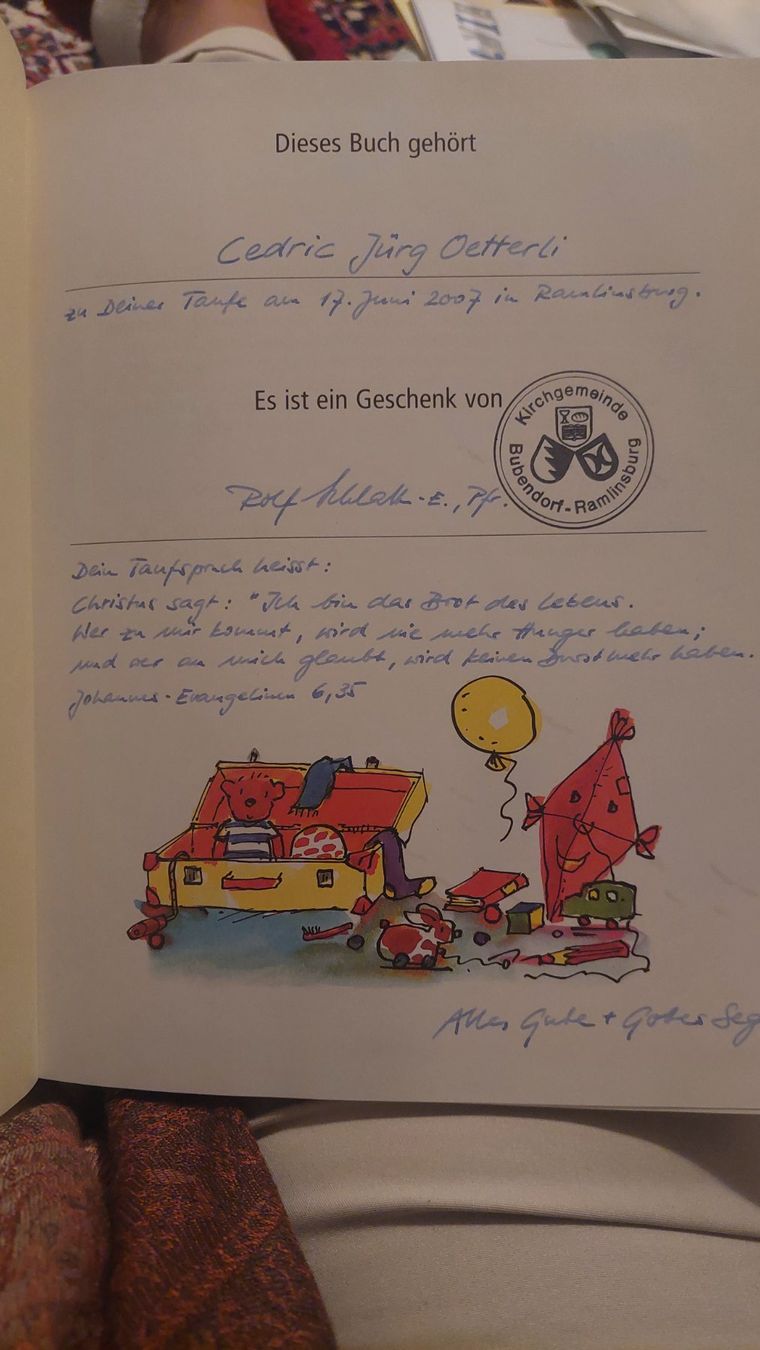 Dieses Buch gehört
Cedric Jürg Oetterli
zu Deiner Taufe am 17. Juni 2007 in Ramlinsburg.
Es ist ein Geschenk von
Kirchgemeinde
Bubendorf-Ramlinsburg
Rolf -E., Pfr.
Dein Taufspruch heisst:
Christus sagt: "Ich bin das Brot des Lebens.
Wer zu mir kommt, wird nie mehr Hunger haben;
und wer an mich glaubt, wird keinen Durst mehr haben.
Johannes-Evangelium 6,35
Alles Gute + Gottes Seg